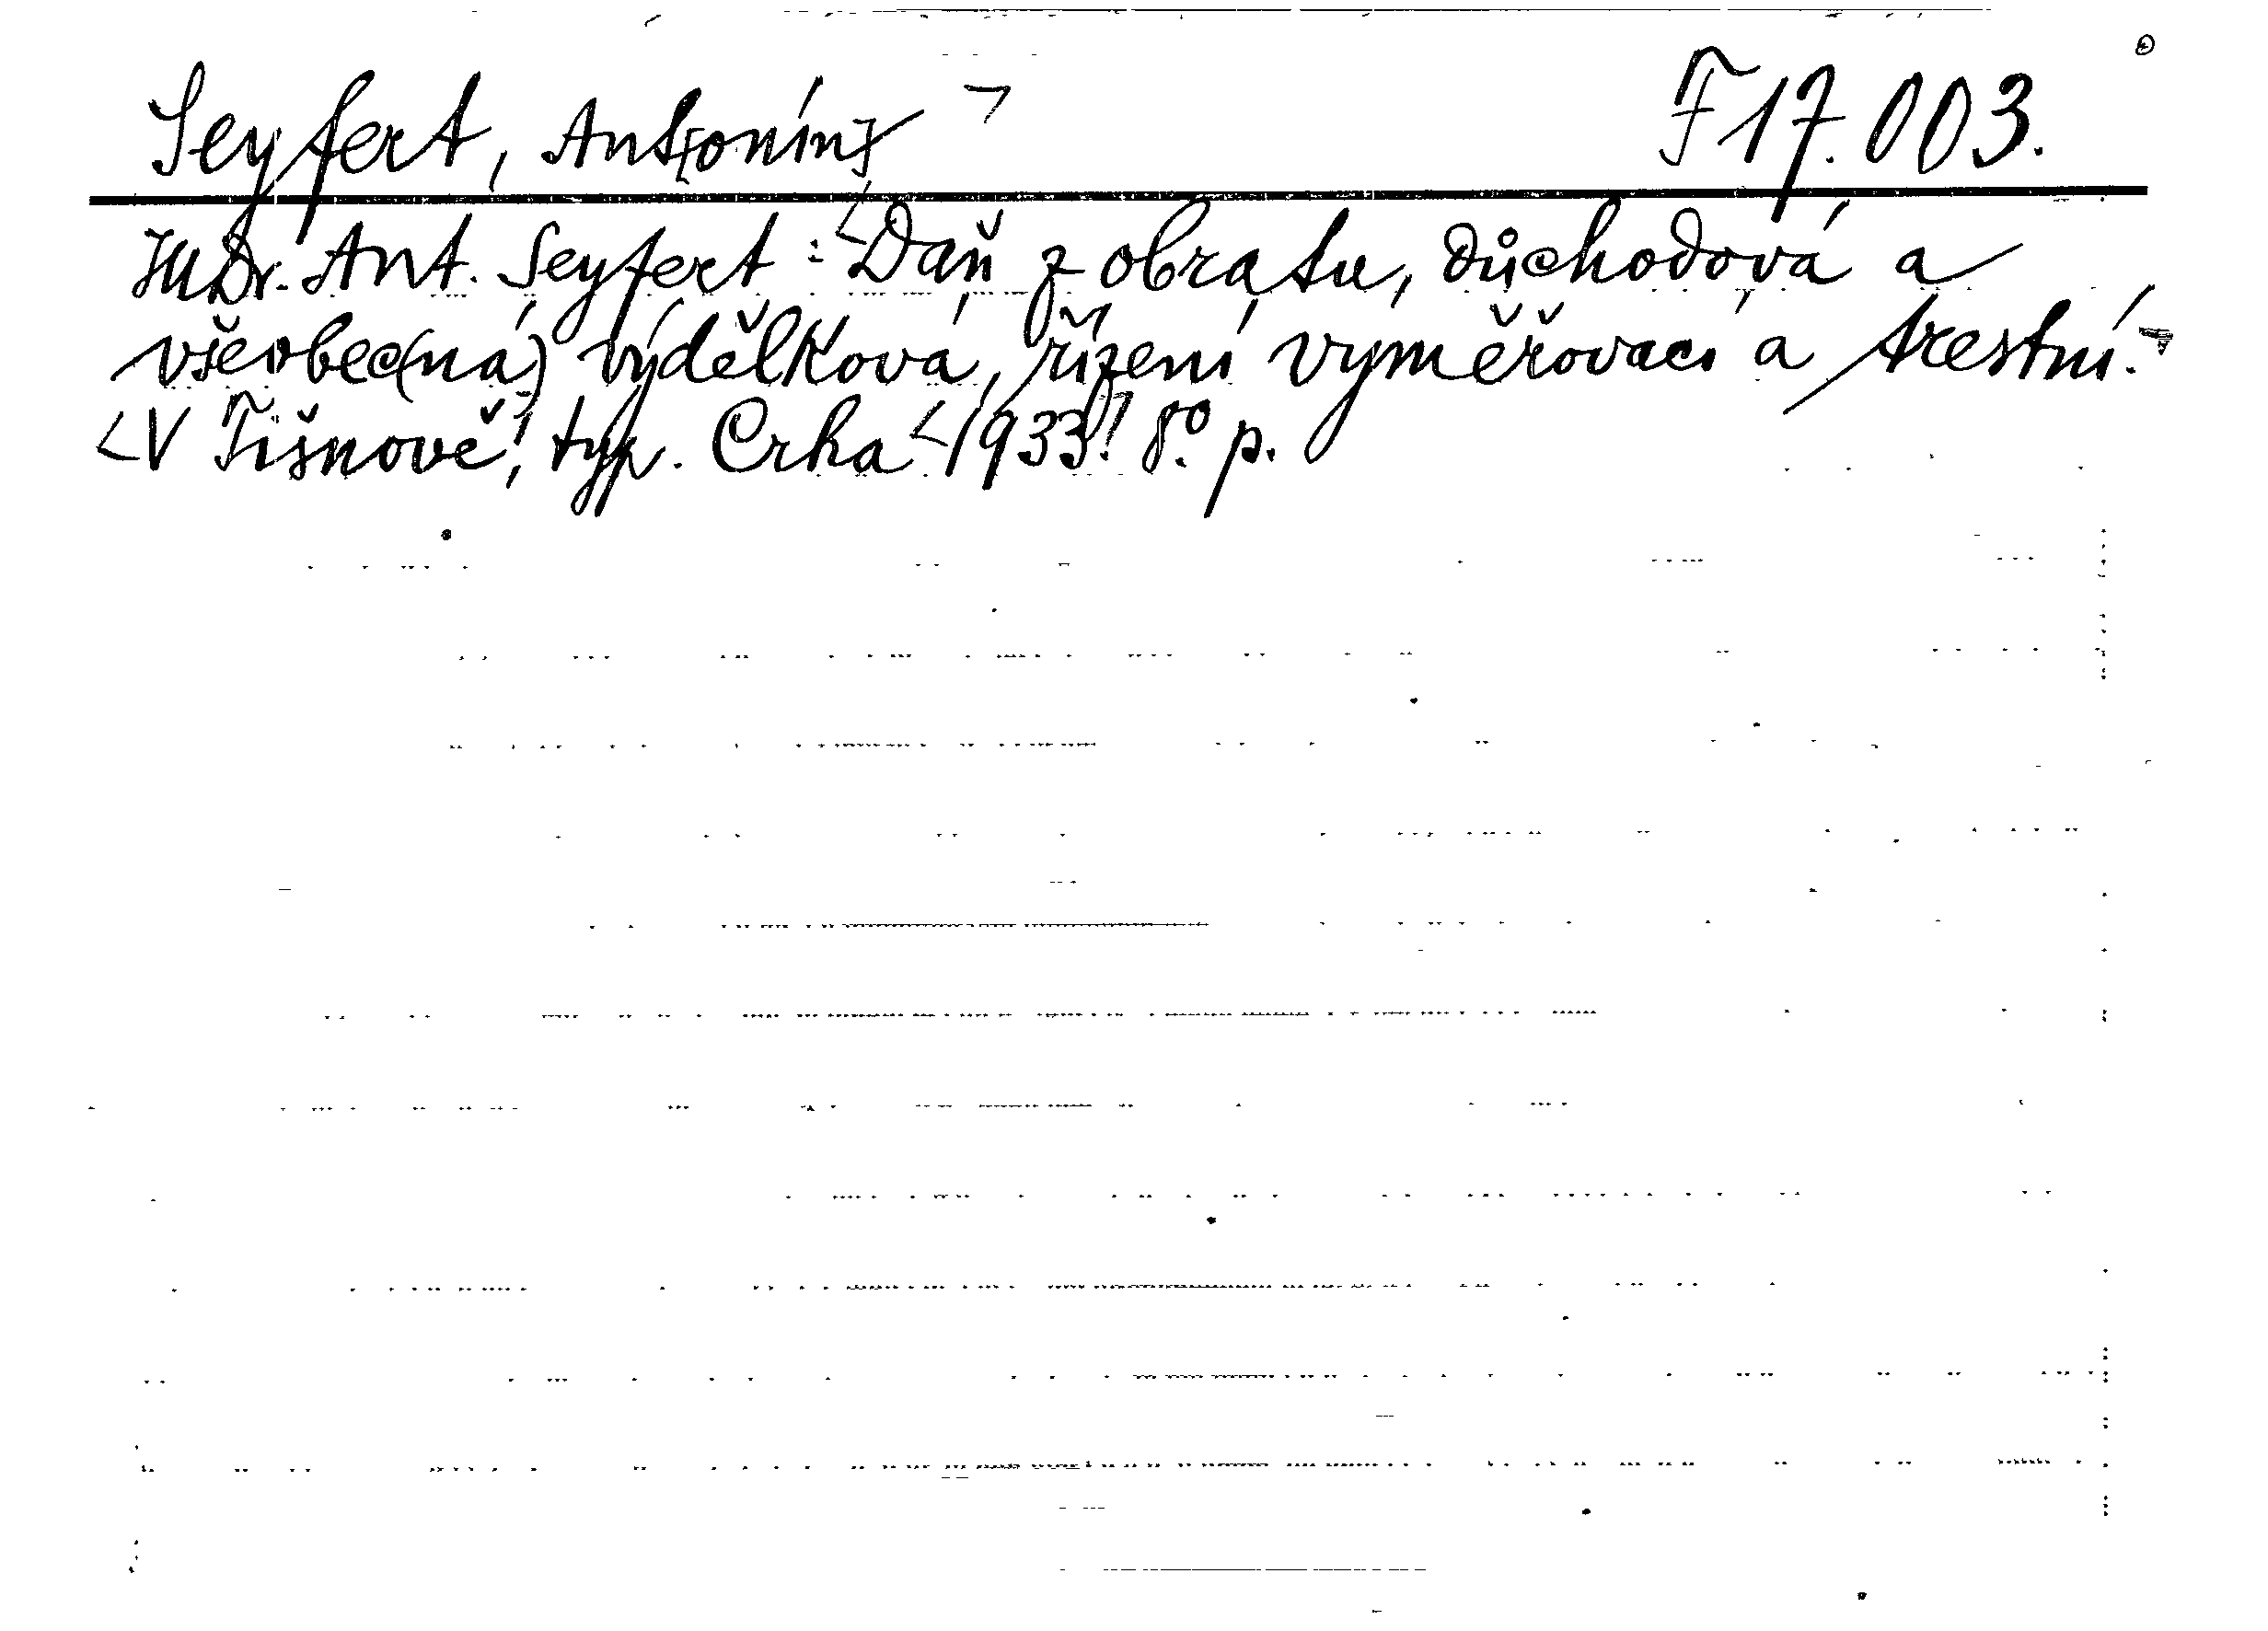 Seyfert, Ant[onín] ¬ F 17.003.
JUDr. Ant. Seyfert: <Daň z obratu, důchodová a
všeobec(ná) výdělková, řízení vyměřovací a trestní.¬
<V Tišnově, typ. Crha <1933! 8.° p.